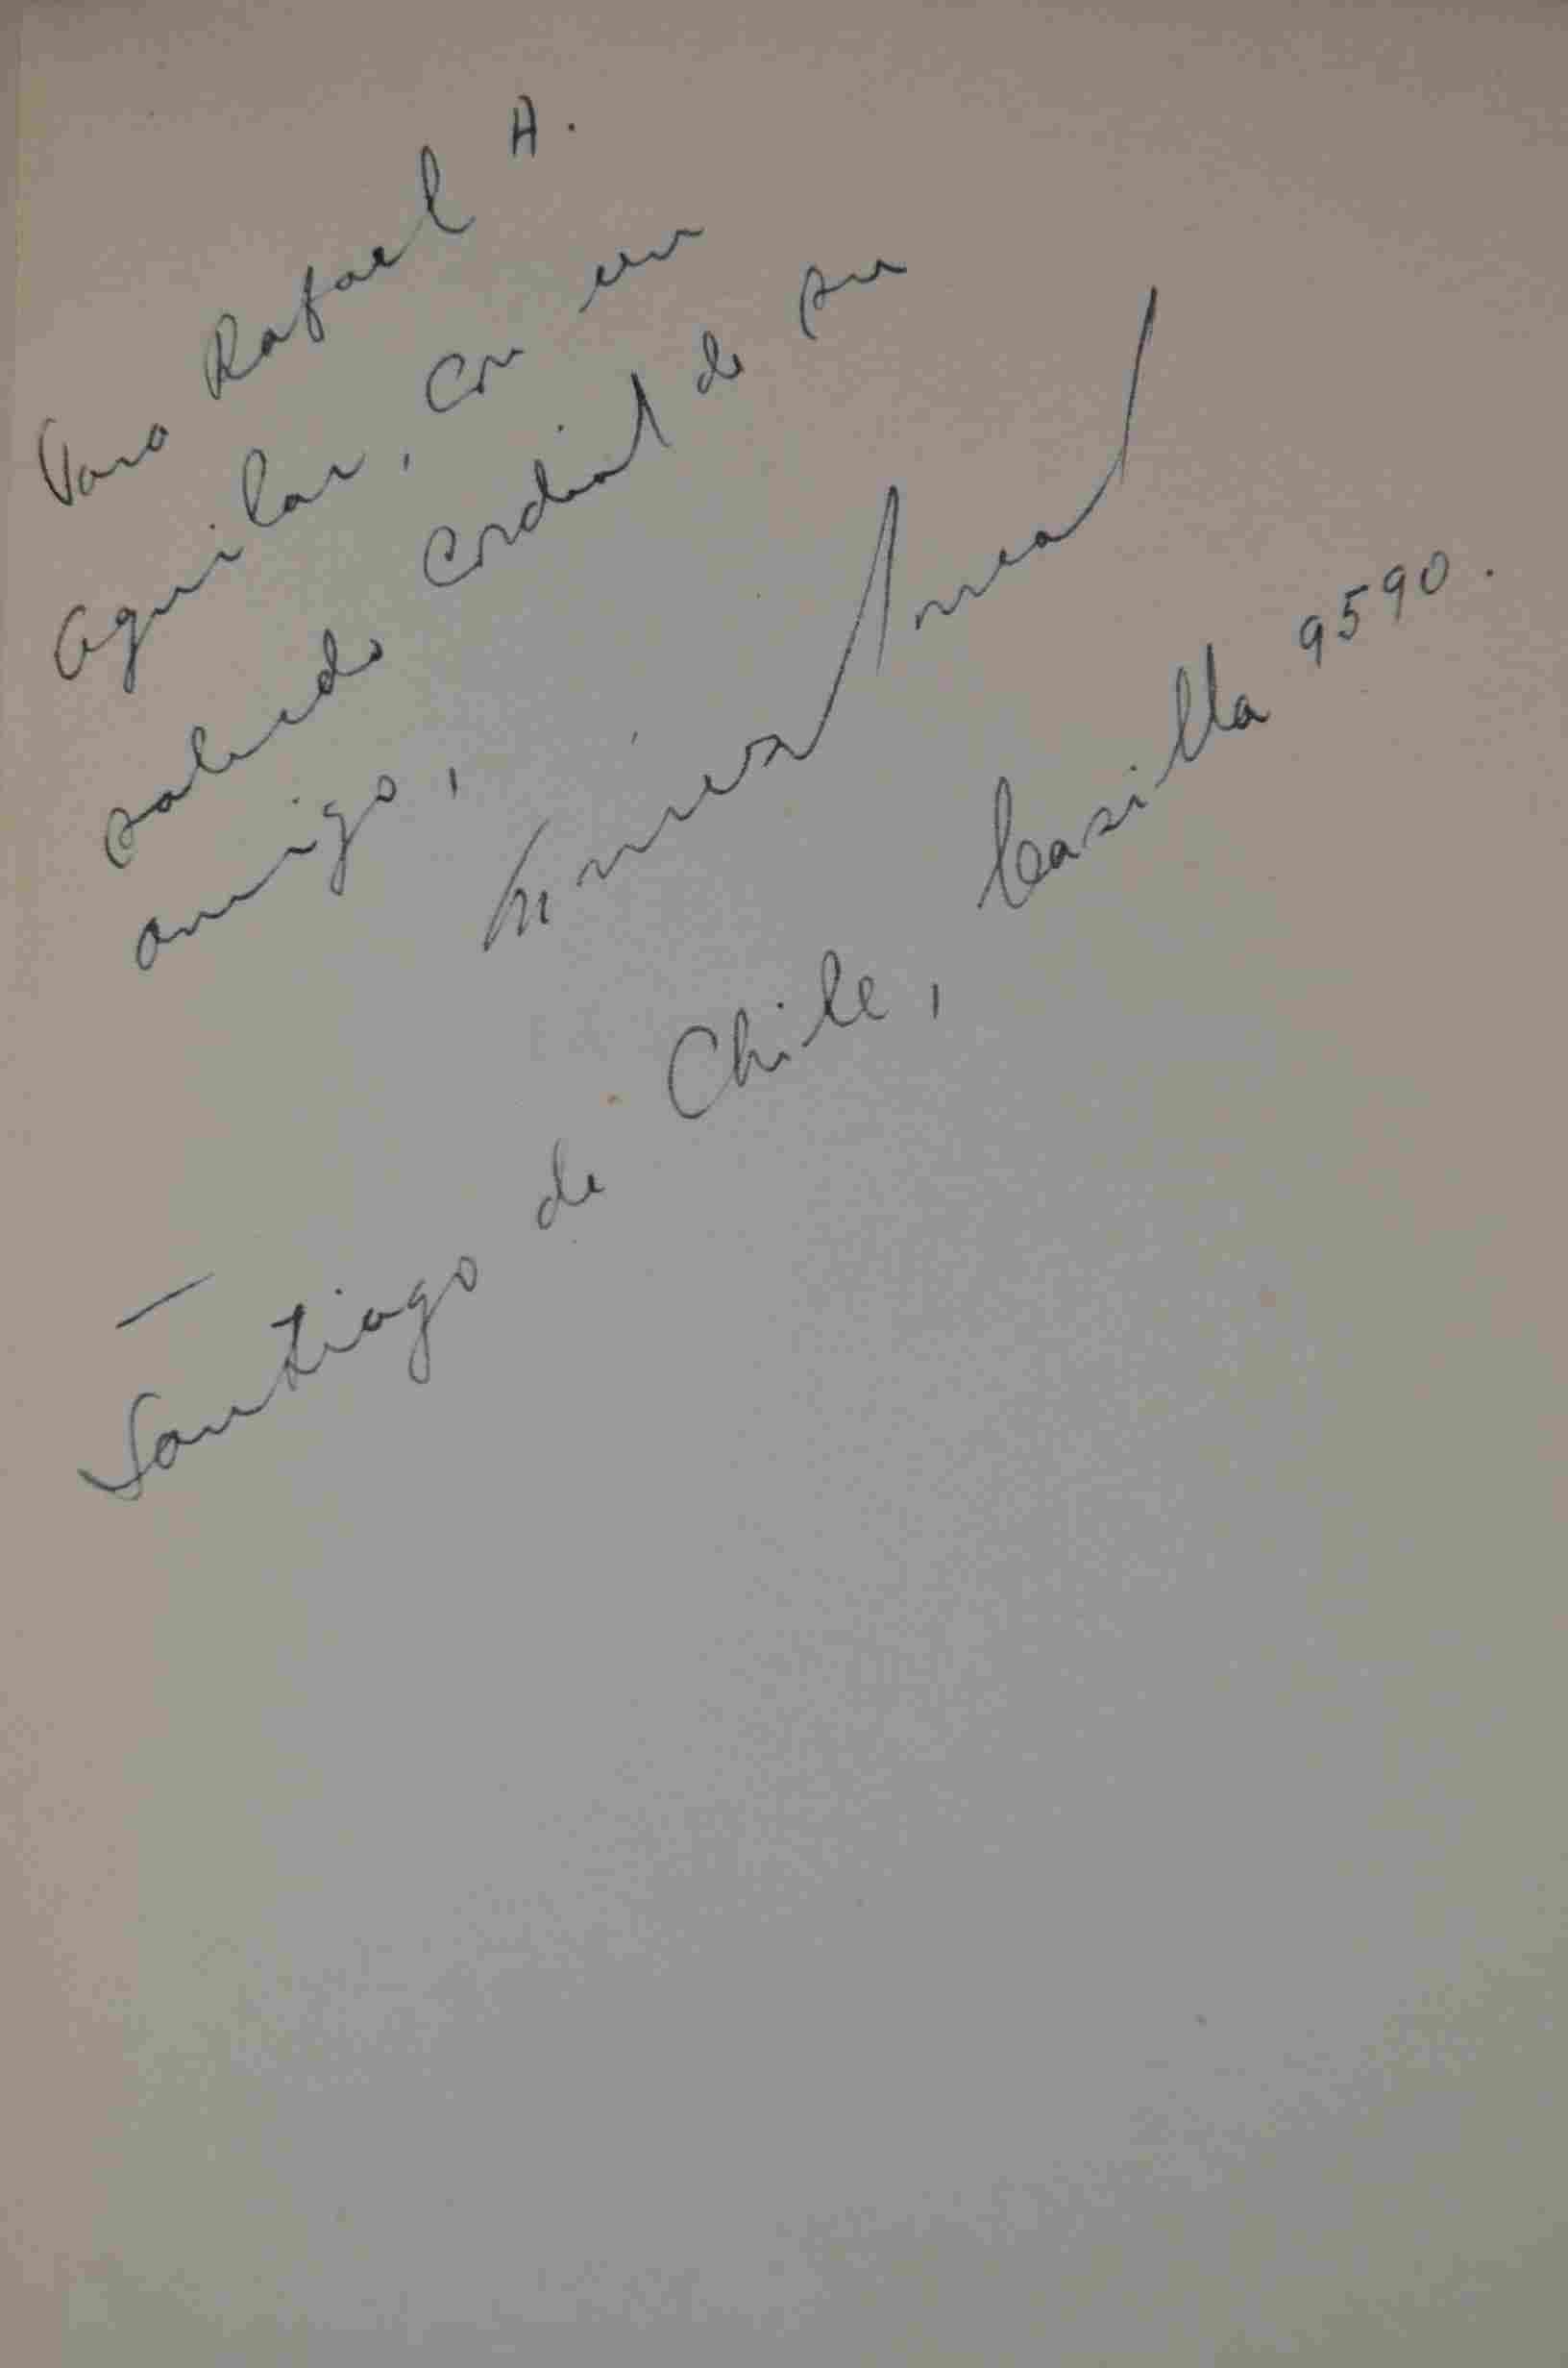 Para Rafael A.
Aguilar, con un
saludo cordial de su
amigo,
Santiago de Chile, Casilla 9590.